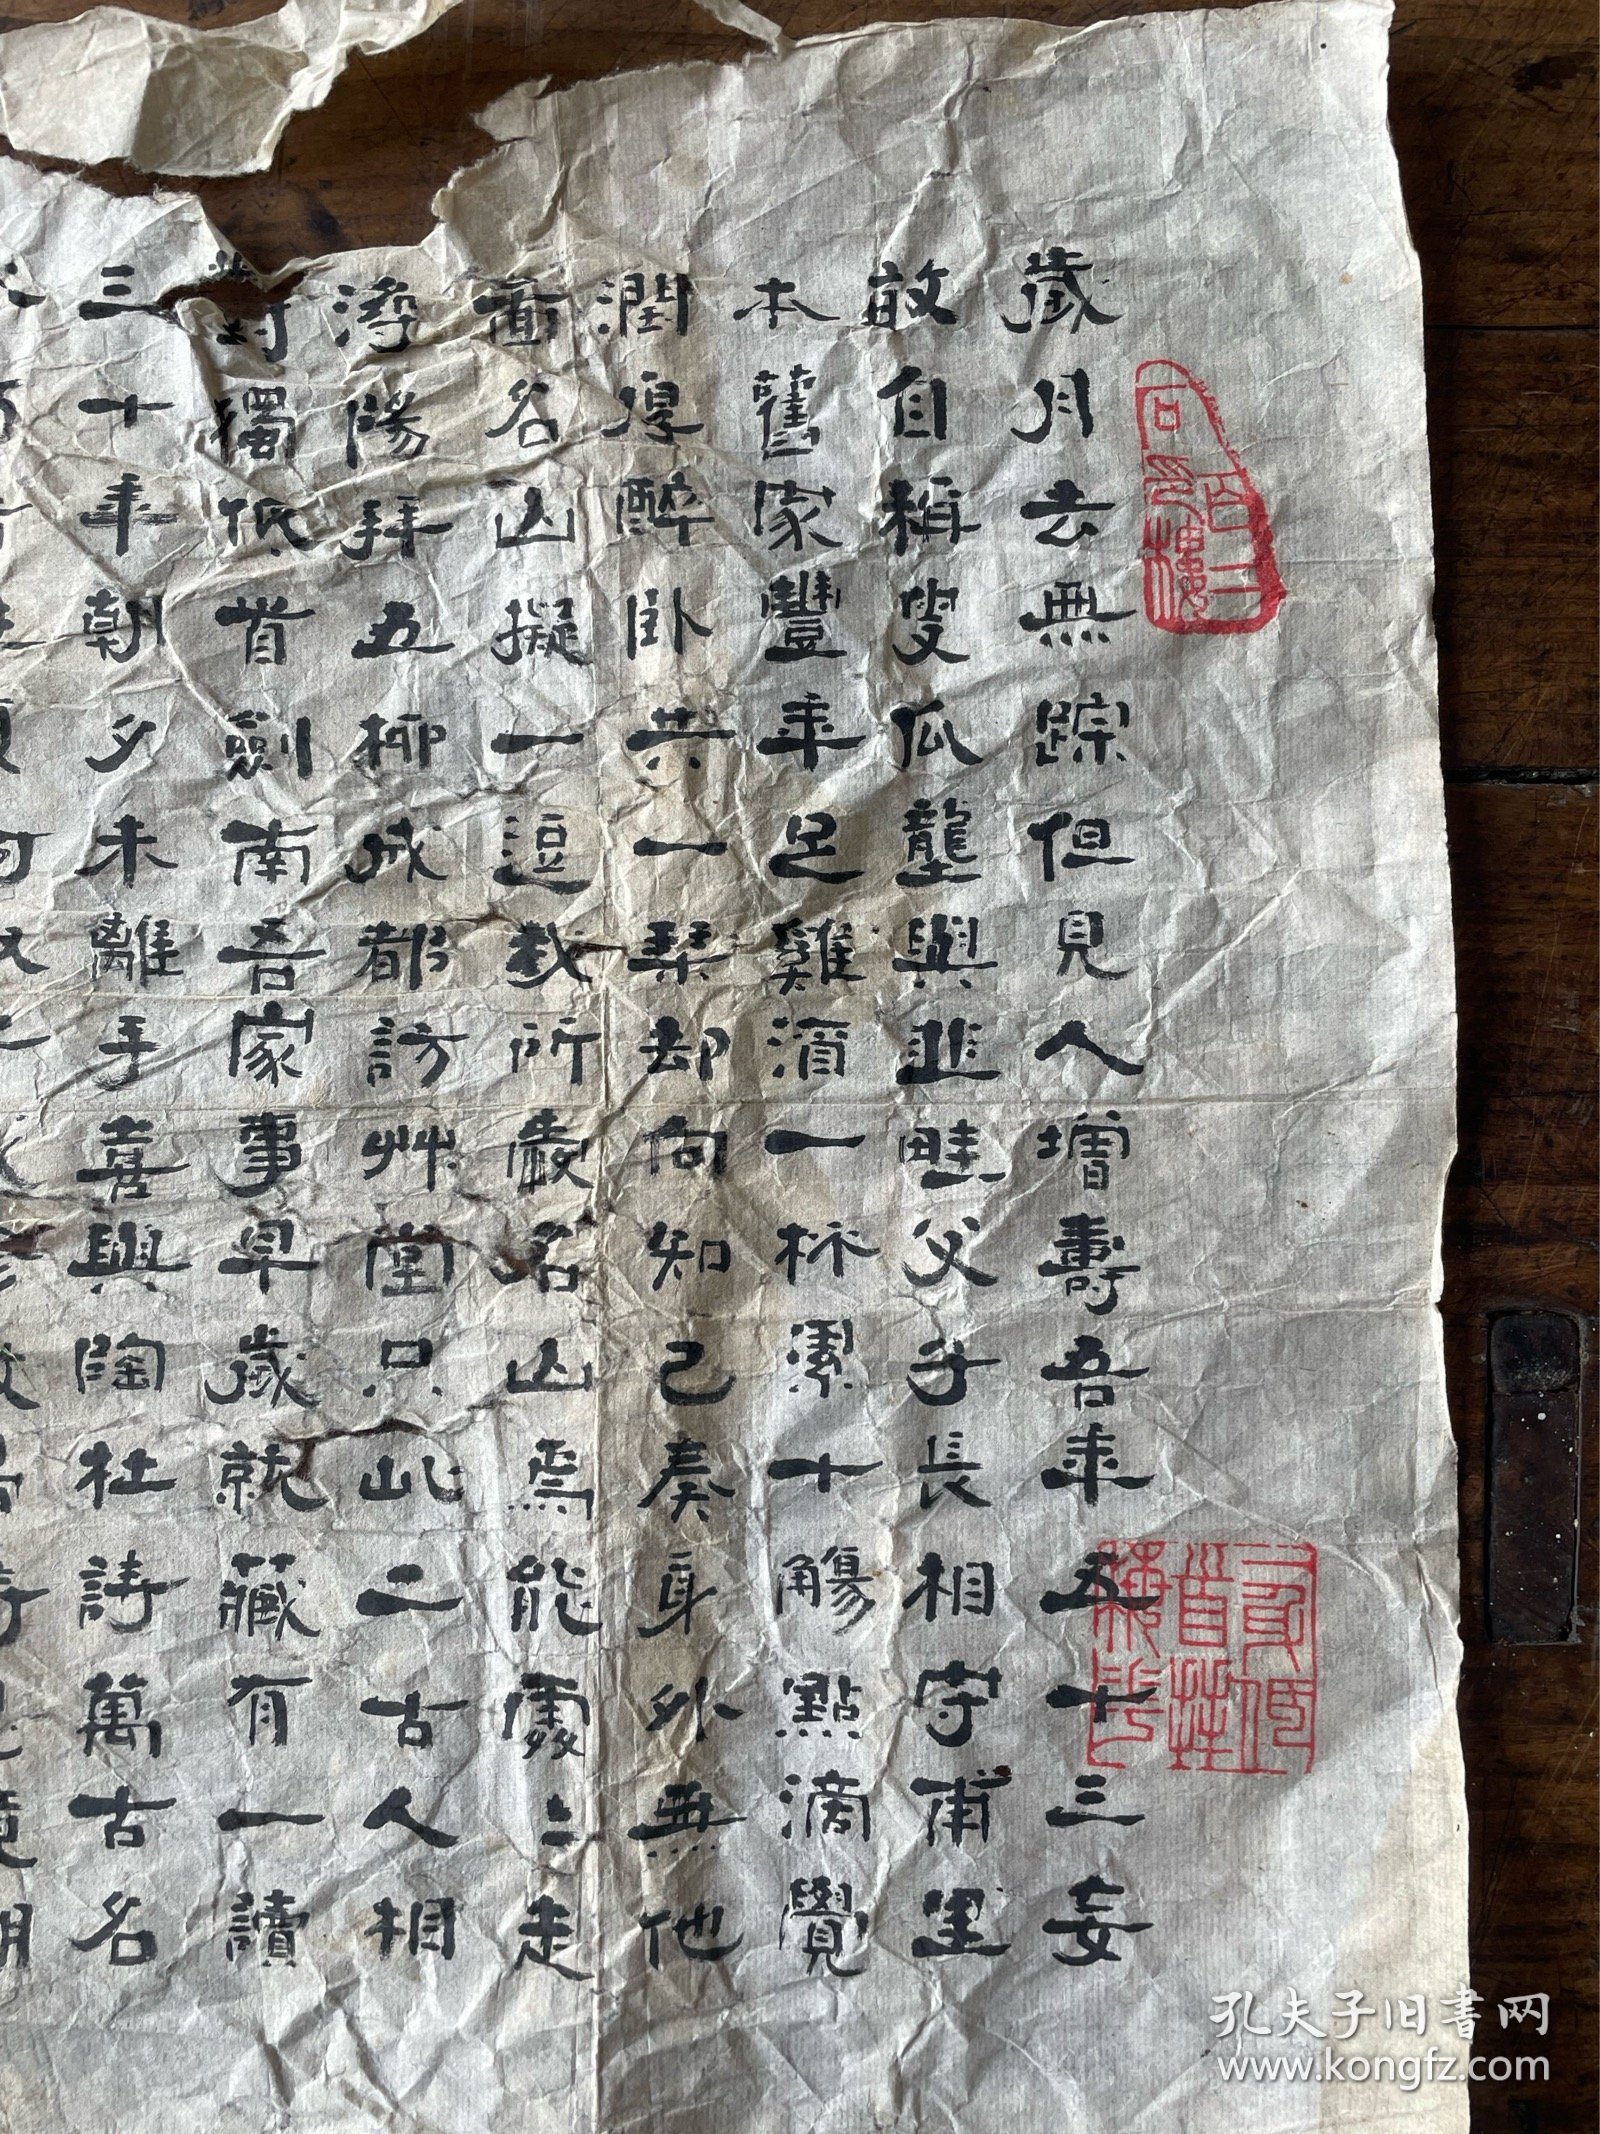 歲月去無踪但見人增壽吾年五十三妄
敢自稱叟瓜壟與韭畦父子長相守甫里
本舊家豐年足雞酒一杯潔十觴點滴覺
潤厚醉卧共一琴却向知己奏身外無他
畜名山擬一逗我所嚴名山焉能處二走
潯陽拜五柳成都訪艸堂只此二古人相
對獨低首劍南吾家事早歲就藏有一讀
三十年朝夕未離手喜與陶杜詩萬古名
孔夫子旧書网
www.kongfz.com